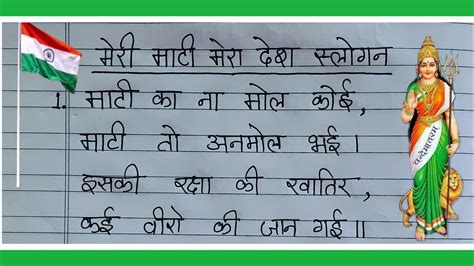 मेरी माटी मेरा देश स्लोगन
1. माटी का ना मोल कोई,
माटी तो अनमोल भई।
इसकी रक्षा की खातिर,
कई वीरो की जान गई॥
वन्देमातरम